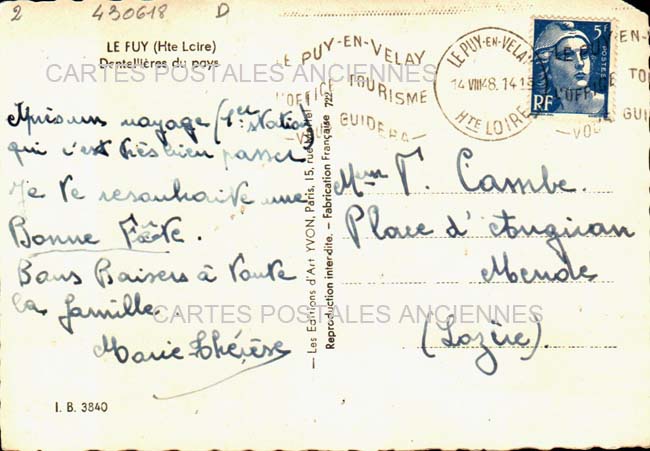 2 430618 D
LE PUY (Hte Loire)
Dentellières du pays
CARTES POSTALES ANCIENNES
LE PUY-EN-VELAY
L'OFFICE TOURISME
VOUS GUIDERA
LE PUY-EN-VELAY
14 VIII 48. 14 15
HTE LOIRE
5F
POSTES
RF
LE PUY-EN-V
L'OFFICE TO
VOUS GUID
Après un voyage (1ère station)
qui s'est très bien passer
Je te resouhaite une
Bonne Fête.
Bons Baisers à toute
la famille.
Marie-Thérèse
I. B. 3840
— Les Editions d'Art YVON, Paris, 15, rue Martel —
Reproduction interdite. — Fabrication Française 722
Mme T. Cambe.
Place d'Anguiran
Mende
(Lozère)
CARTES POSTALES ANCIENNES